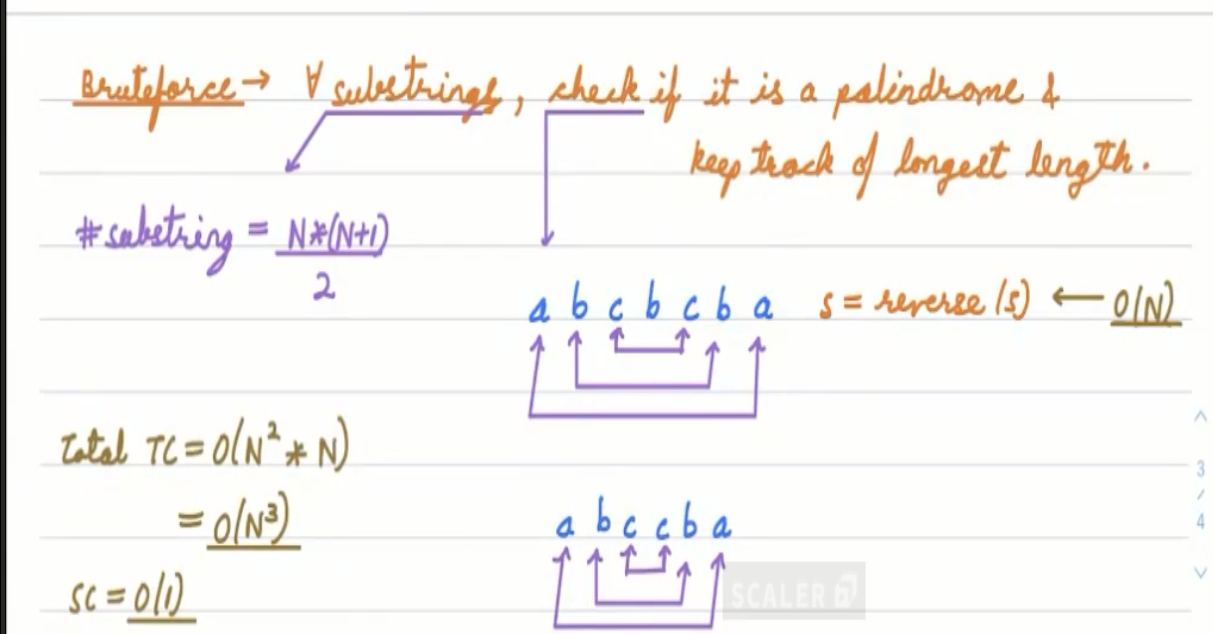 Bruteforce → ∀ substrings, check if it is a palindrome &
keep track of longest length.
# substring = N*(N+1)
2
a b c b c b a s = reverse (s) ← O(N)
Total TC = O(N² * N)
= O(N³)
a b c c b a
SC = O(1)
SCALER
3
/
4